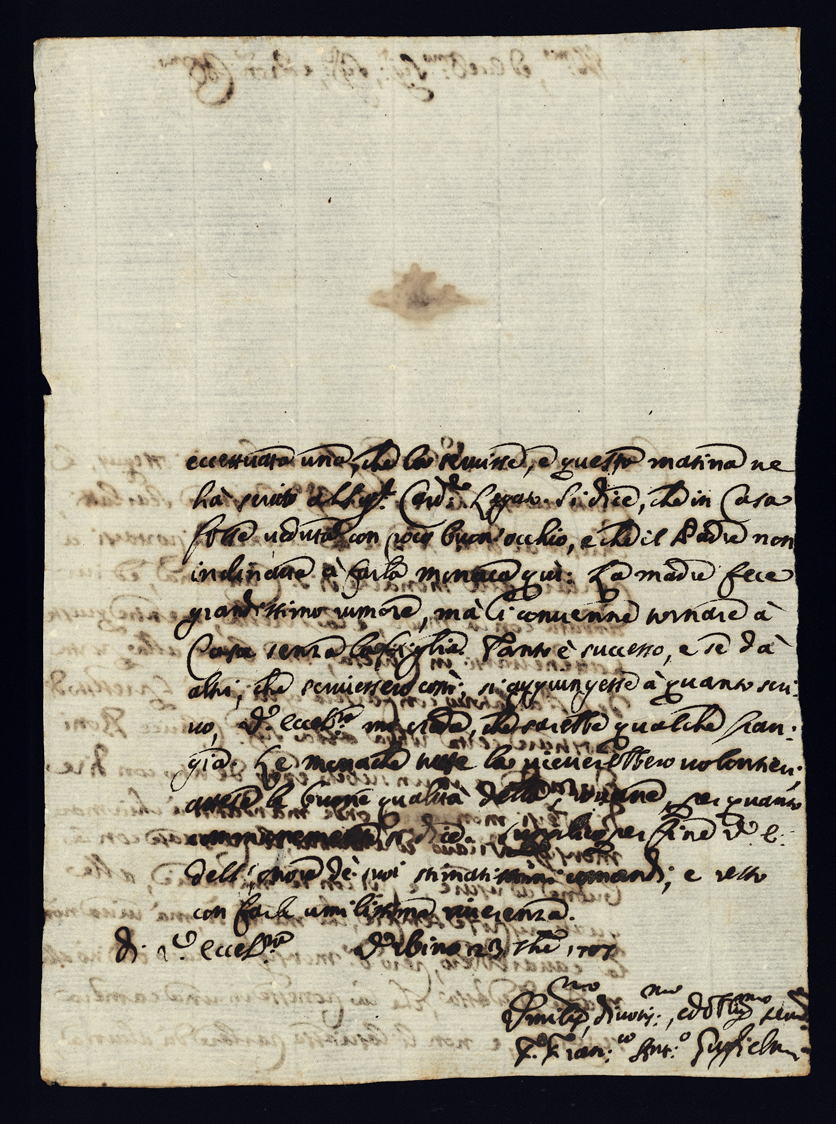 eccettuata una, che lo scrisse, e questa matina ne
hà scritto al Sigr. Card.le Legato. Si dice, che in Casa
fosse veduta con poco buon occhio, e che il Padre non
inclinasse à farla monaca quì. La madre fece
grandissimo rumore, mà li convenne tornare à
Casa senza la figlia. Tanto è successo, e se dà
altri, che scrivessero costì, si aggiungesse à quanto scri-
vo, V. Eccell.za mi creda, che sarebbe qualche fran-
gia. Le monache tutte la riceverebbero volontieri,
attese le buone qualità della giovane, per quanto
si dice. Supplico per fine V. E.
dell'onore de' suoi stimatissimi comandi, e resto
con farle umilissima riverenza.
Di V. Eccell.za Urbino 23 1707
Umil.mo, divotis.mo, ed obblig.mo
F. Fran.co Ant.o